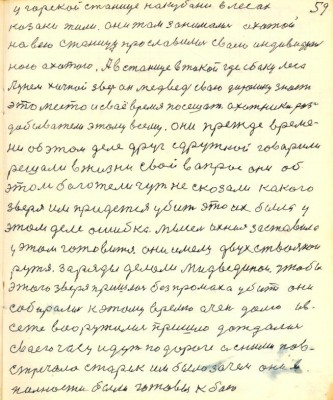 59
у горской станице на кубани в лесах
козаки жили. они там занимали охотой
на всю станицу прославили своею индивидуал
ного охотою. А в станице в такой где сбоку леса
хичной звер ан медвед свою знают
это место и своё время посещат охотники
этому всему. они прежде време-
ни об этом деле друг с дружкой говорили
решали в жизни свой вапрос они об
этом боготеи чут не сказали какого
зверя им придется убит это их была у
этом деле ошибка. заставила
у этом готовится. они имели двух ствольная
ружя. заряды делали Мидвединой, чтобы
этого зверя пришлос без промаха убит они
собирались к этому время очен долго
все же вооружилис пришло дождалис
своего часу идут по дороге с ними пов-
стречалс старик им было зачем они в
палности были готовы к бою